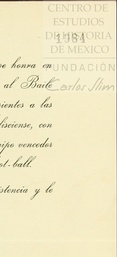 CENTRO DE
ESTUDIOS
DE HISTORIA
DE MEXICO
FUNDACIÓN
Carlos Slim
1984
honra en
al Baile
rientes a las
lisciense, con
uipo vencedor
ot-ball.
istencia y le